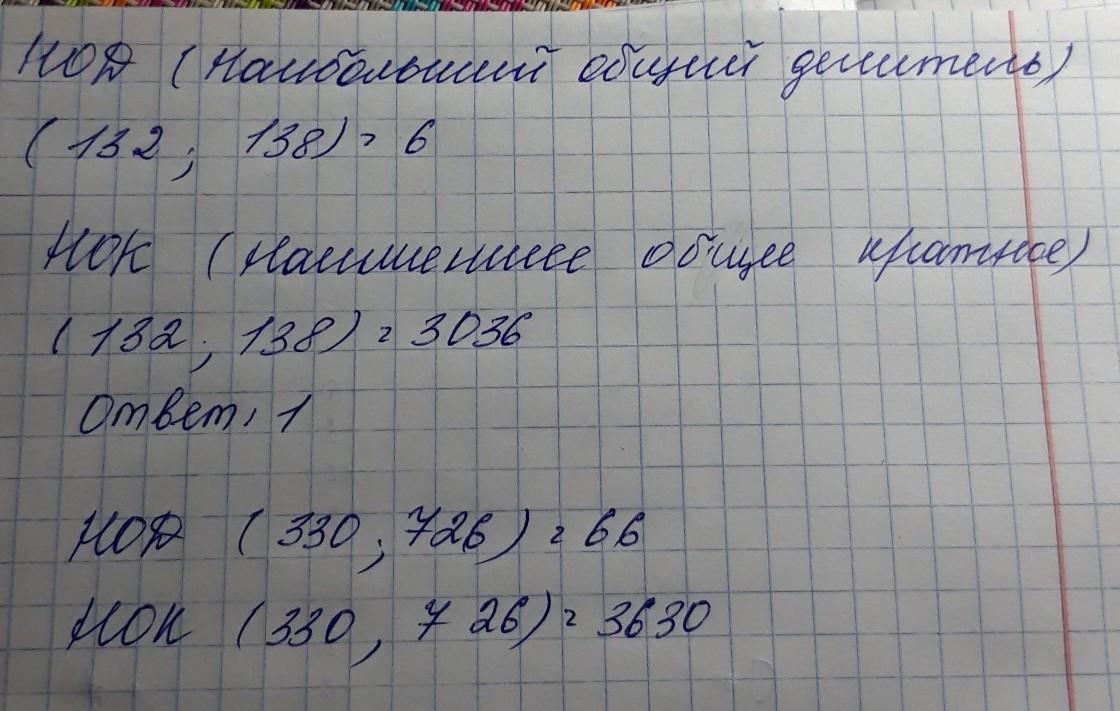 НОД (Наибольший общий делитель)
(132; 138) = 6
НОК (Наименшее общее кратное)
(132; 138) = 3036
Ответ: 1
НОД (330; 726) = 66
НОК (330, 726) = 3630